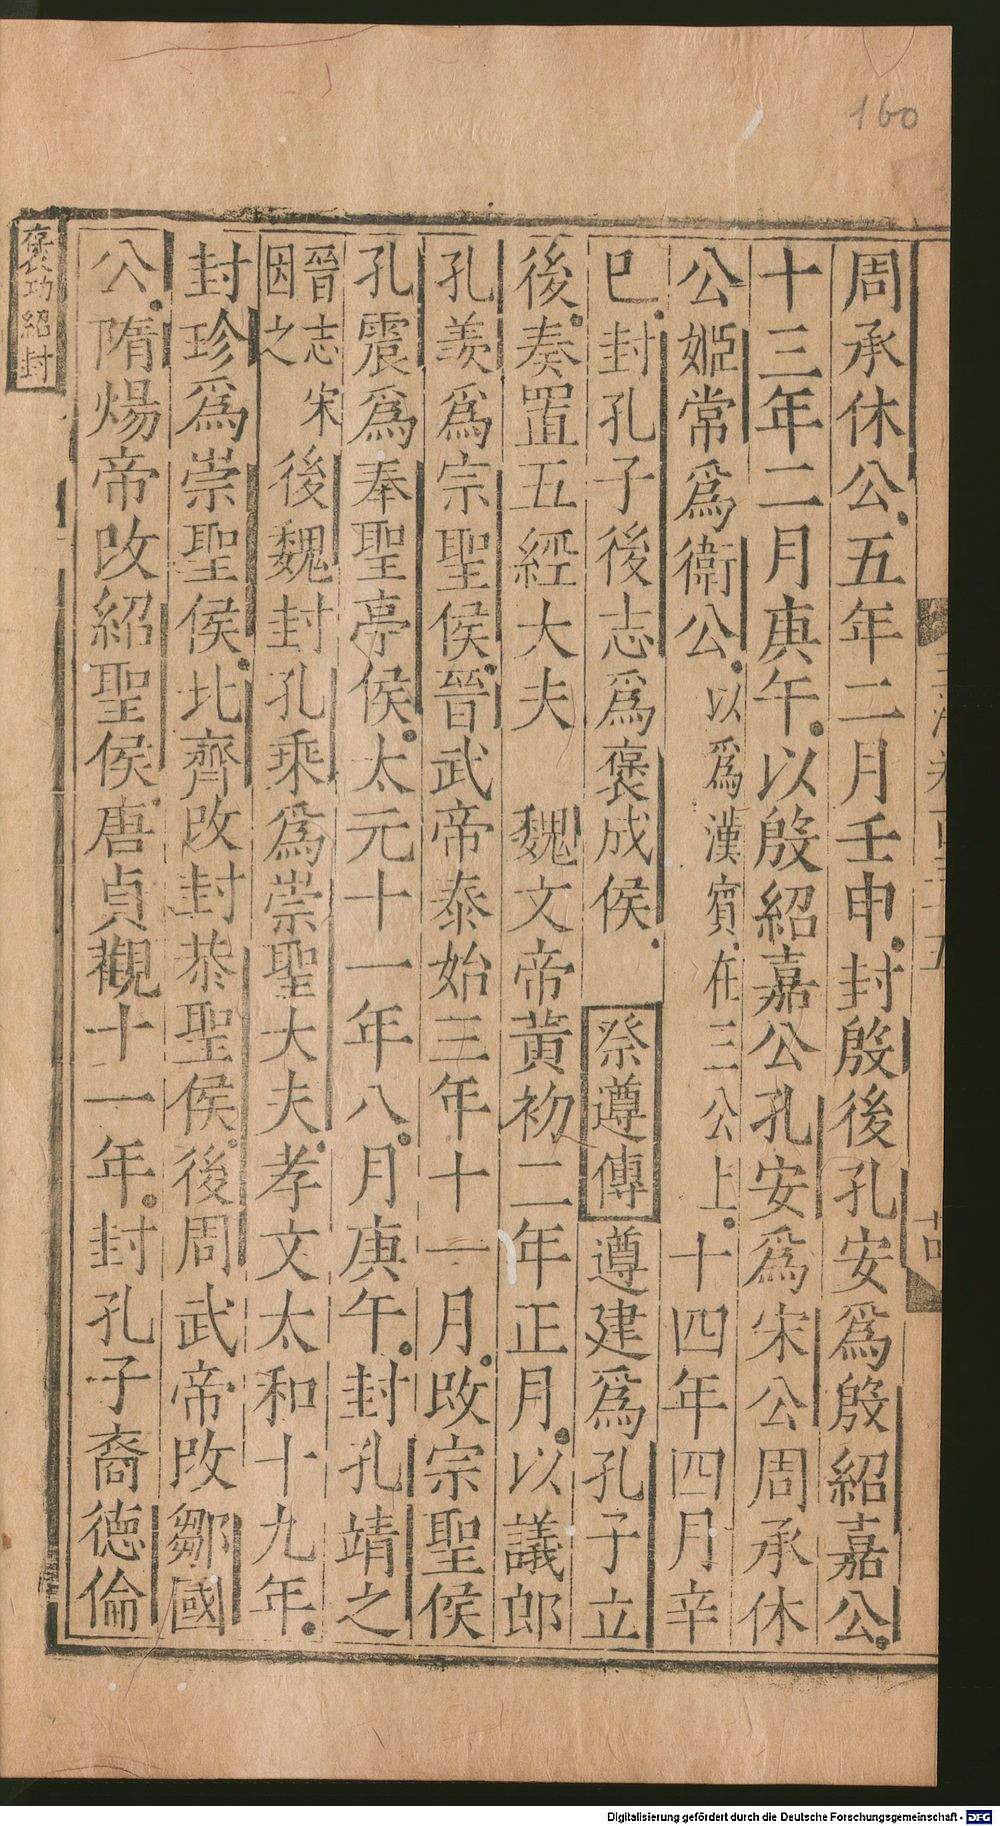 160
周承休公五年二月壬申封殷後孔安爲殷紹嘉公
十三年二月庚午以殷紹嘉公孔安爲宋公周承休
公姬常爲衛公以爲漢賓在三公上十四年四月辛
巳封孔子後志爲褒成侯 祭遵傳遵建爲孔子立
後奏置五經大夫 魏文帝黃初二年正月以議郎
孔羨爲宗聖侯晉武帝泰始三年十一月改宗聖侯
孔震爲奉聖亭侯太元十一年八月庚午封孔靖之
晉志宋因之後魏封孔乘爲崇聖大夫孝文太和十九年
封珍爲崇聖侯北齊改封恭聖侯後周武帝改鄒國
公隋煬帝改紹聖侯唐貞觀十一年封孔子裔德倫
褒功紹封
Digitalisierung gefördert durch die Deutsche Forschungsgemeinschaft - DFG